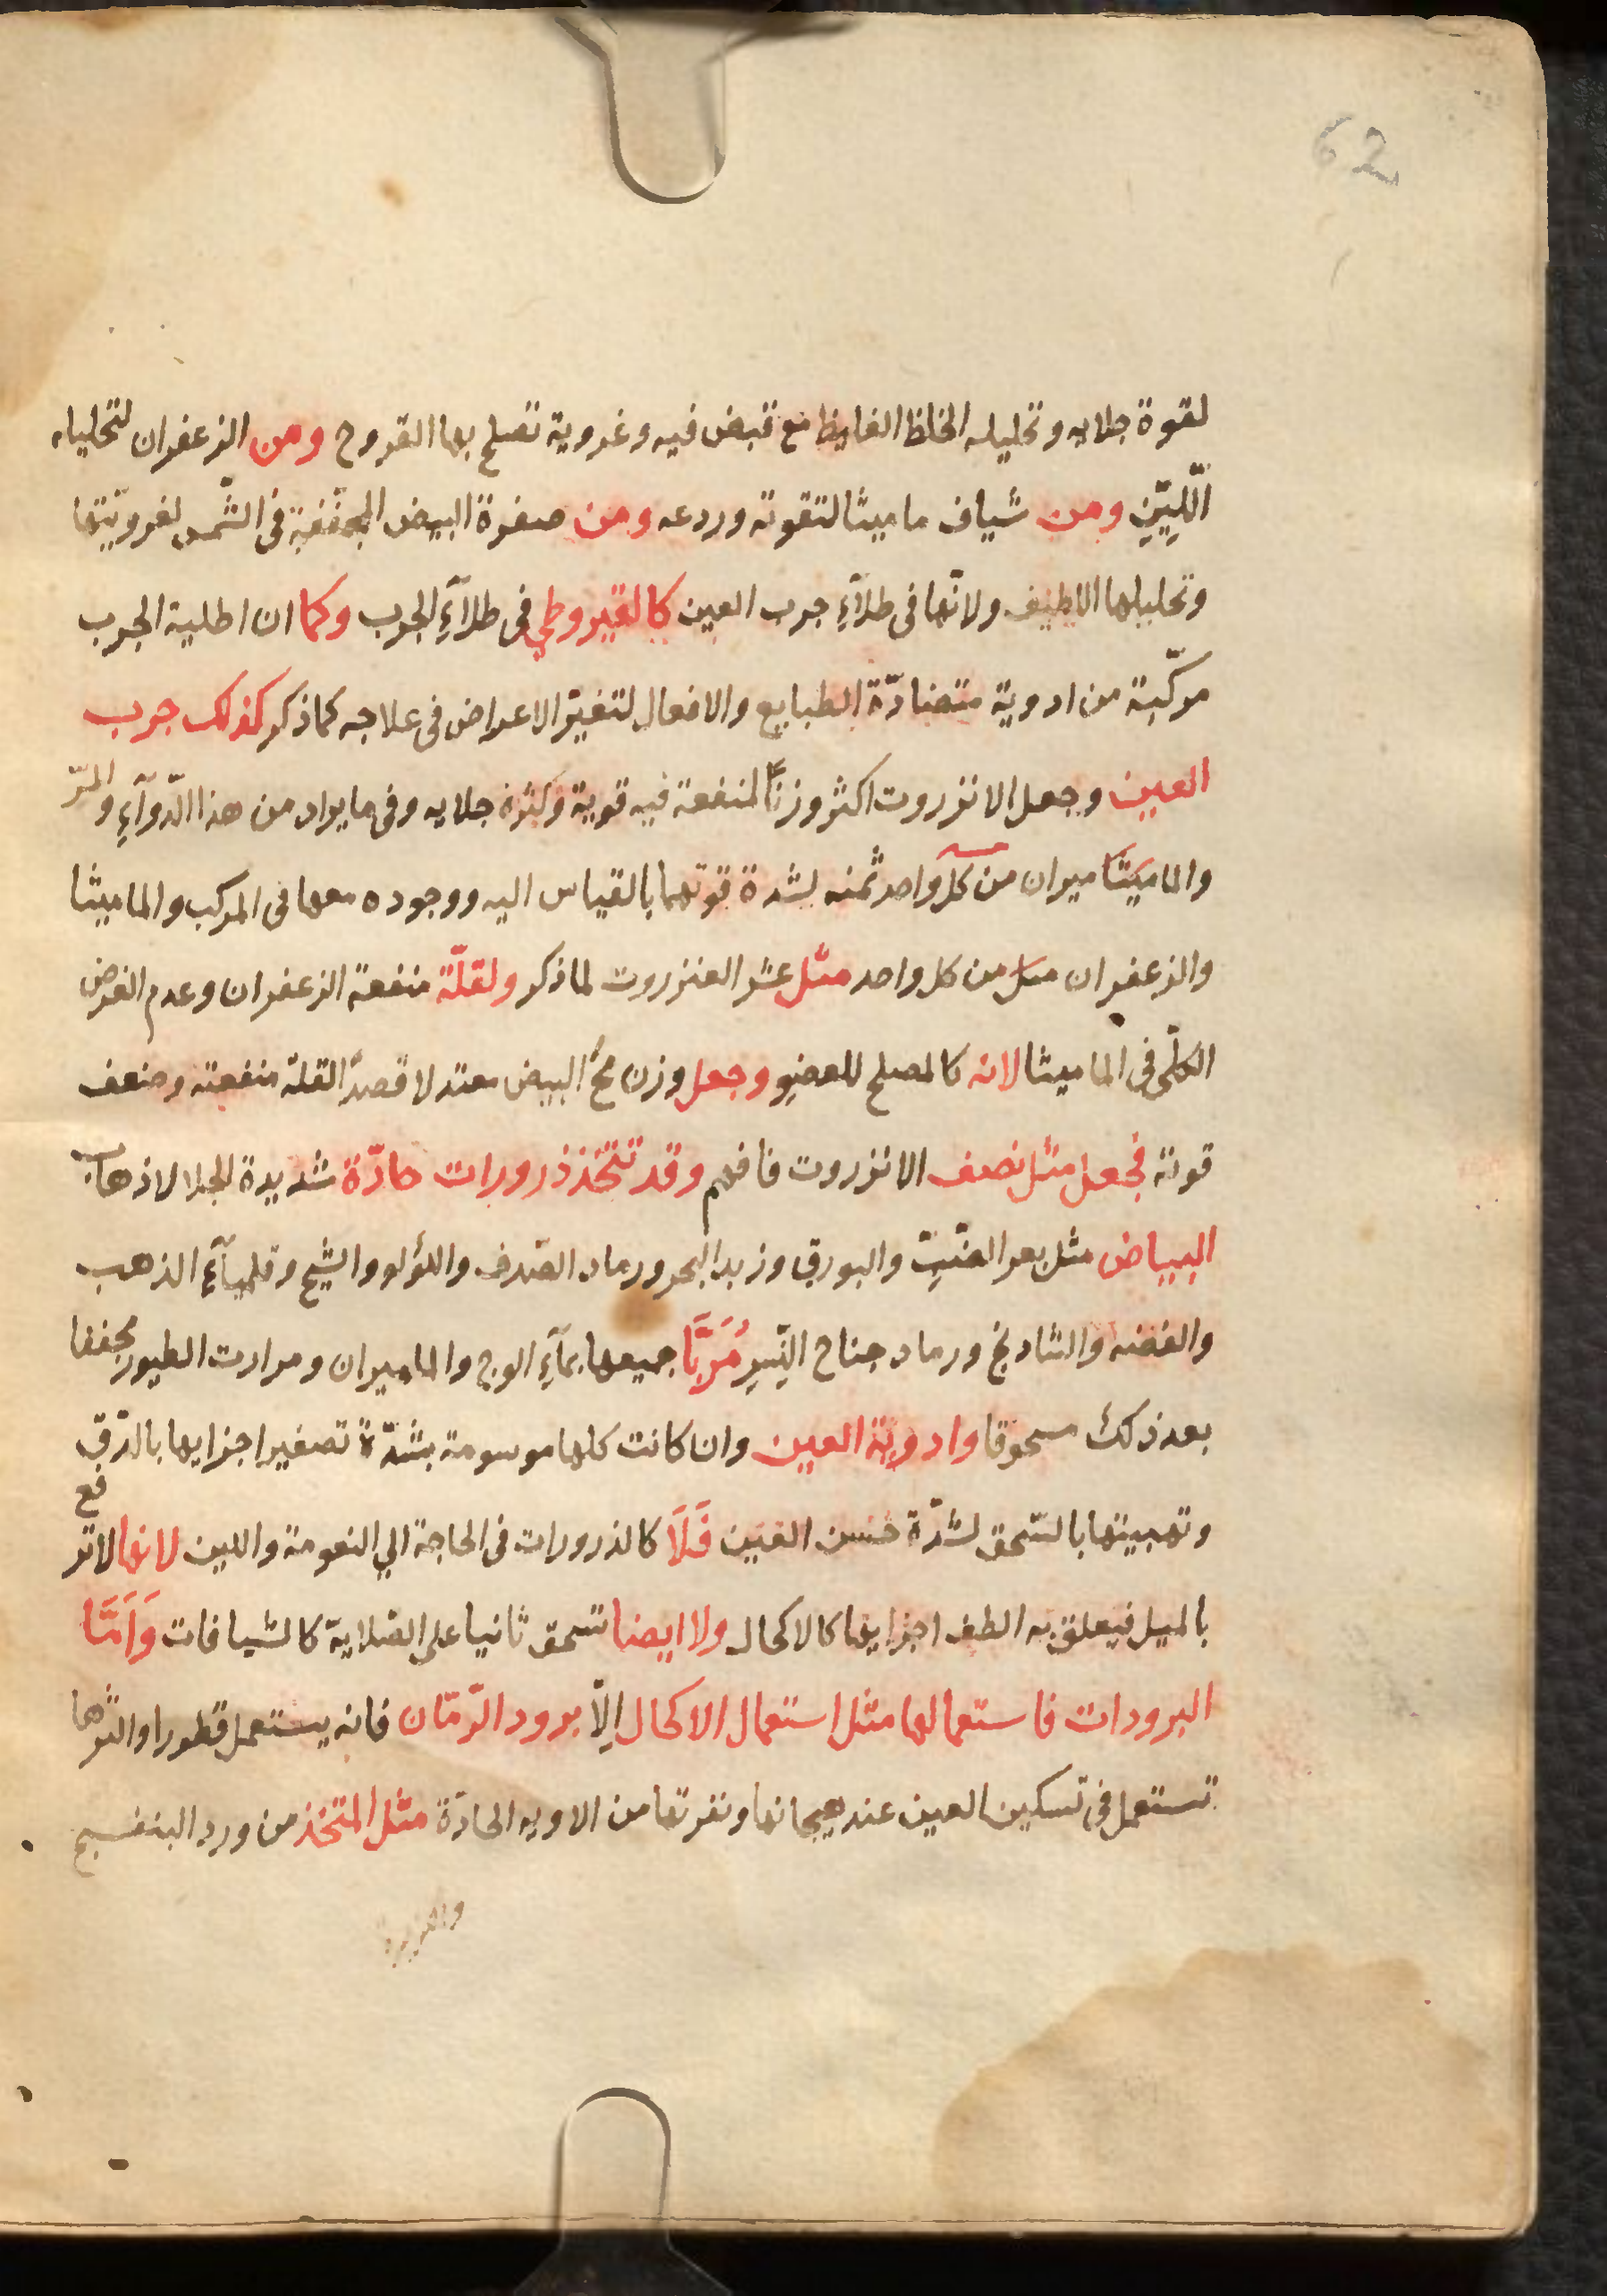 62
لقوة جلايه وتحليله الخلط الغليظ مع قبض فيه وغروية تصلح بها القروح ومن الزعفران لتحليله
اللّيِّنِ ومن شياف ماميثا لتقوته وردعه ومن صفرة البيض المجفّفة فى الشّمس لغرويّتها
وتحليلها اللطيف ولانّها فى طلآءِ جرب العين كالقيروطي فى طلآءِ الجرب وكما ان اطلية الجرب
مركّبة من ادوية متضادّة الطبايع والافعال لتغيّر الاعراض فى علاجه كما ذكر كذلك جرب
العين وجعل الانزروت اكثر وزنًا لمنفعة فيه قوية وكثرة جلايه وفى ما يراد من هذا الدّوآءِ والمرّ
والماميران من كل واحد ثمنه لشدة قوتهما بالقياس اليه ووجوده معهما فى المركب والماميثا
والزعفران من كل واحد مثل عشر العنزروت لما ذكر ولقلّة منفعة الزعفران وعدم الغرض
الكلّى فى الماميثا لانه كالمصلح للعضو وجعل وزن مح البيض معتدلا قصدًا لقلة منفعته وضعف
قوته فجعل مثل نصف الانزروت فافهم وقد تتخذ ذرورات حادّة شديدة الجلا لاذهاب
البياض مثل بعر الضّبّ والبورق وزبد البحر ورماد الصّدف واللؤلو والشيح وقليمآءِ الذهب
والفضه والشادنج ورماد جناح النّسرِ مُرَبَّا جميعها بمآءِ الوج والماميران ومرارت الطيور مجففا
بعد ذلك مسحوقا وادوية العين وان كانت كلها موسومة بشدّة تصغير اجزايها بالدّق
وتهبيتها بالسّحق لشدّة حسن العين فَلَا كالذرورات فى الحاجة الي النعومة واللين لانها لا ترفع
بالميل فيعلق به الطف اجزايها كالاكحال ولا ايضا تسحق ثانيا على الصّلاية كالشيافات وَاَمَّا
البرودات فاستعمالها مثل استعمال الاكحال اِلّا برود الرّمّان فانه يستعمل قطورا واكثرها
تستعمل فى تسكين العين عند هيجانها ونفرتها من الاويه الحادّة مثل المتخذ من ورد البنفسج